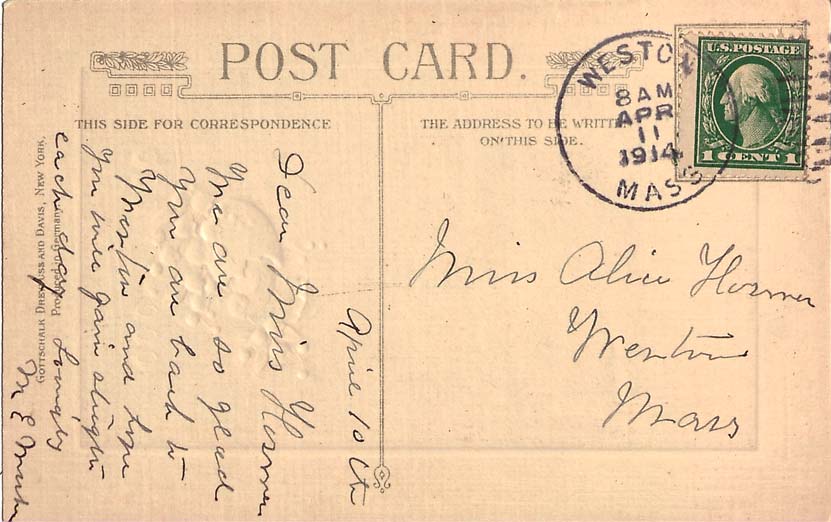 POST CARD.
THIS SIDE FOR CORRESPONDENCE
THE ADDRESS TO BE WRITTEN
ON THIS SIDE.
WESTON
8 AM
APR
11
1914
MASS
U.S. POSTAGE
1 CENT 1
April 10th
Dear Miss Hosmer
We are so glad
You are back to
Weston and hope
You will gain strength
each day Lovingly
M E
Miss Alice Hosmer
Weston
Mass
GOTTSCHALK DREYFUSS AND DAVIS, NEW YORK.
Printed in Germany